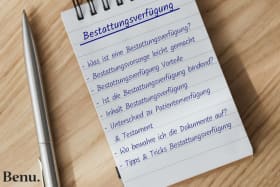 Bestattungsverfügung
- Was ist eine Bestattungsverfügung?
- Bestattungsvorsorge leicht gemacht
- Bestattungsverfügung Vorteile
- Ist die Bestattungsverfügung bindend?
- Inhalt Bestattungsverfügung
- Unterschied zu Patientenverfügung
& Testament
- Wo bewahre ich die Dokumente auf?
- Tipps & Tricks Bestattungsverfügung
Benu.